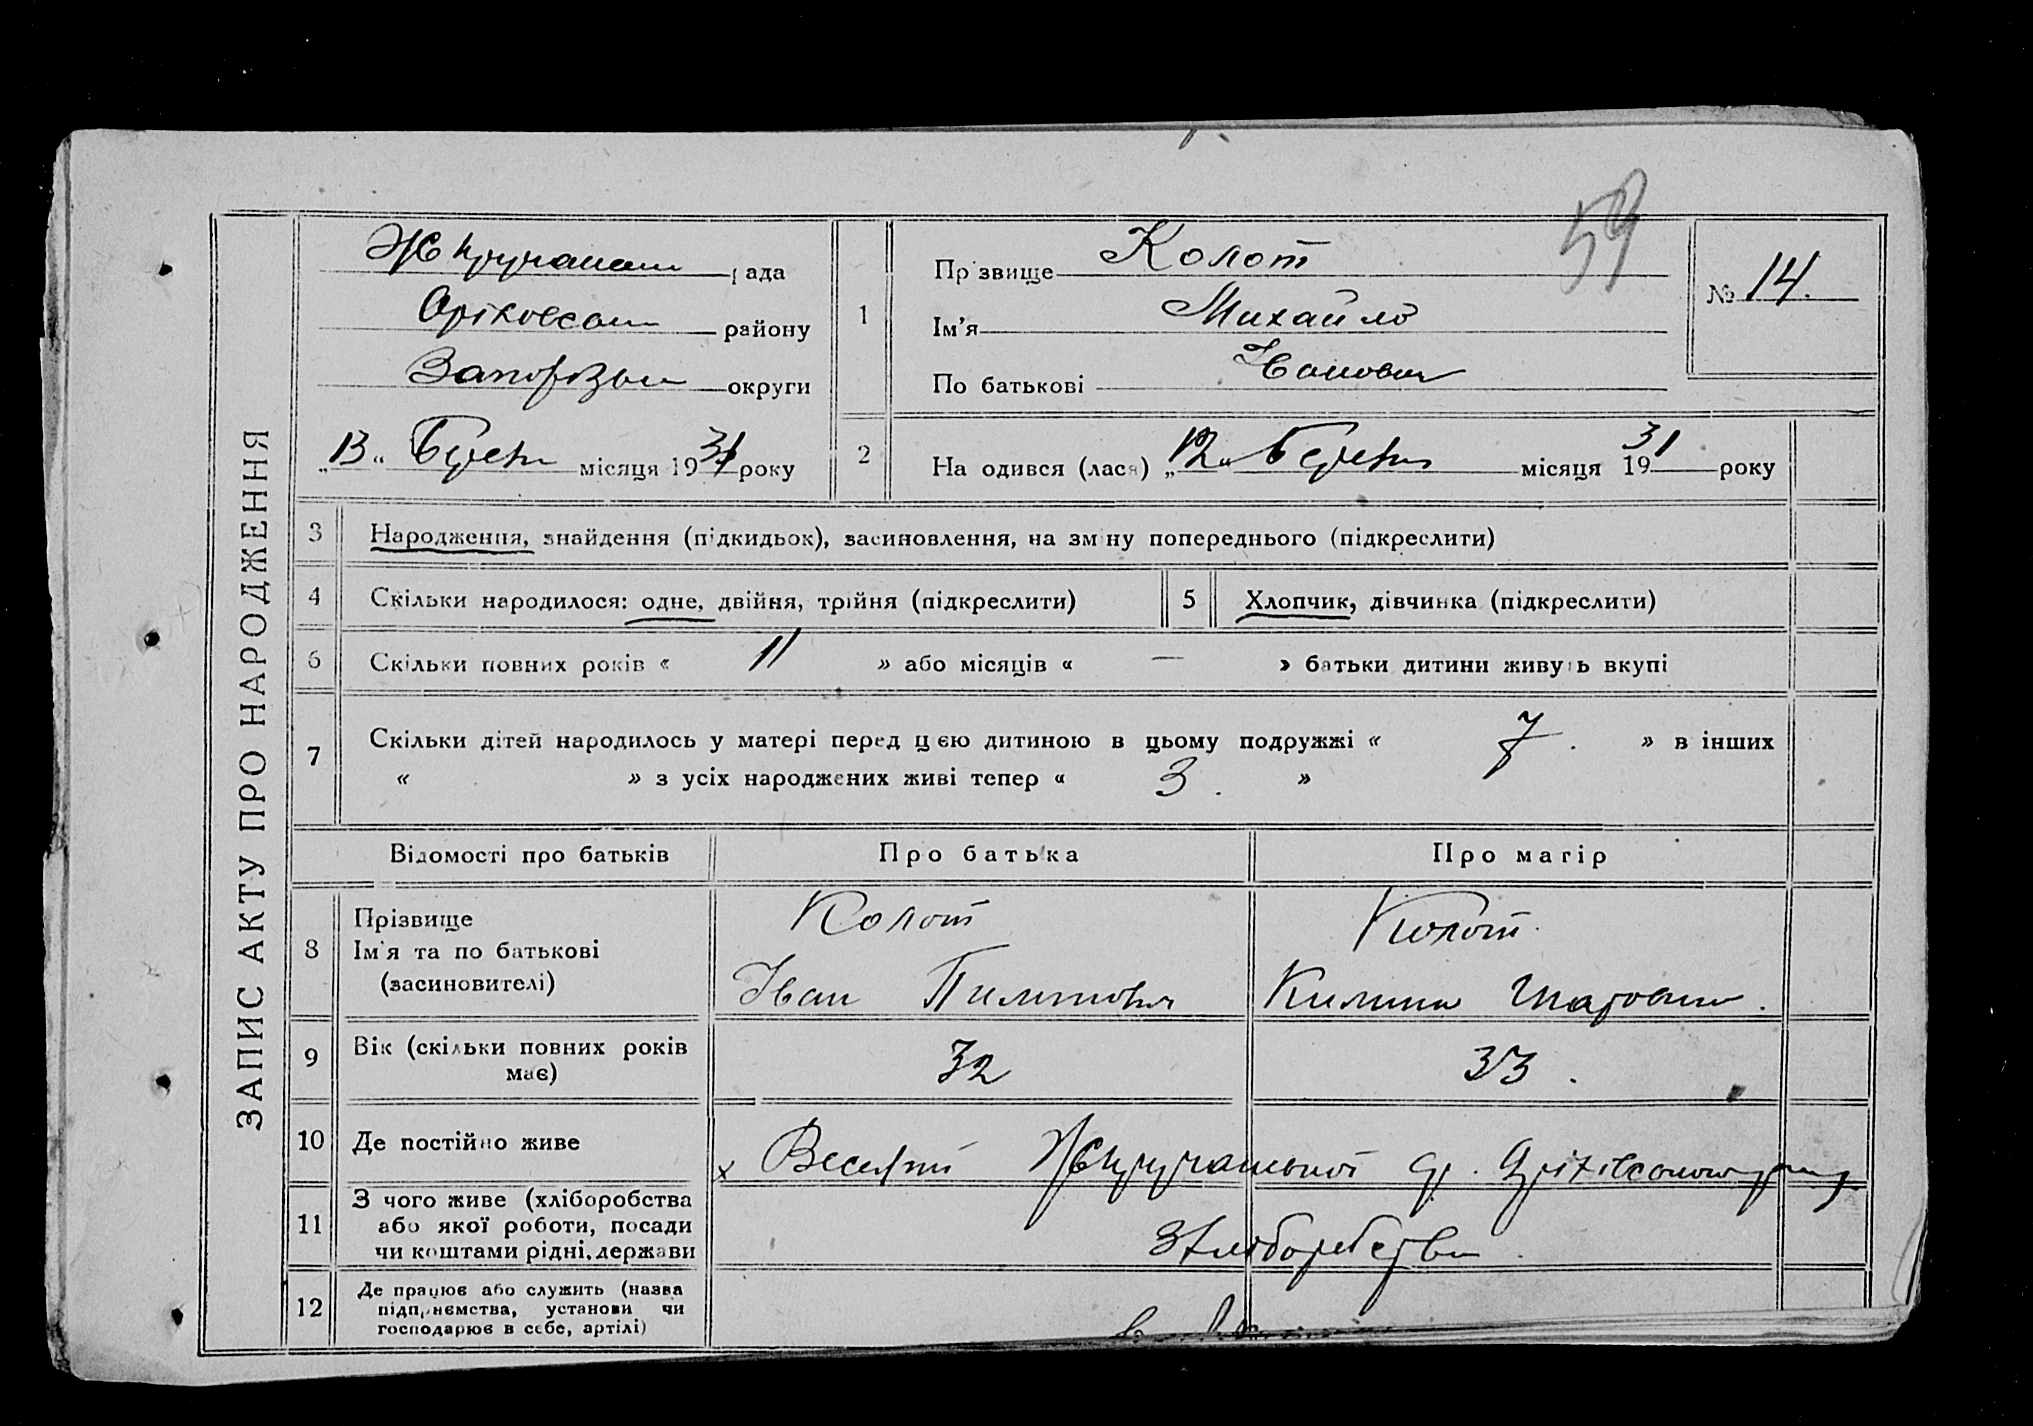 59
ЗАПИС АКТУ ПРО НАРОДЖЕННЯ
рада
Оріховськ району
Запорізьк округи
„13“ Березн місяця 1931 року
1
Прізвище Колот
Ім'я Михайло
По батькові Іванович
№ 14.
2 Народився (лася) „12“ Березня місяця 1931 року
3 Народження, знайдення (підкидьок), засиновлення, на зміну попереднього (підкреслити)
4 Скільки народилося: одне, двійня, трійня (підкреслити)
5 Хлопчик, дівчинка (підкреслити)
6 Скільки повних років « 11 » або місяців « — » батьки дитини живуть вкупі
7 Скільки дітей народилось у матері перед цією дитиною в цьому подружжі « 7. » в інших
« » з усіх народжених живі тепер « 3. »
Відомості про батьків Про батька Про матір
8 Прізвище Колот Колот
Ім'я та по батькові Іван Пилипович
(засиновителі)
9 Вік (скільки повних років має) 32 33.
10 Де постійно живе
11 З чого живе (хліборобства
або якої роботи, посади
чи коштами рідні, держави
З хліборобства
12 Де працює або служить (назва
підприємства, установи чи
господарює в себе, артілі)